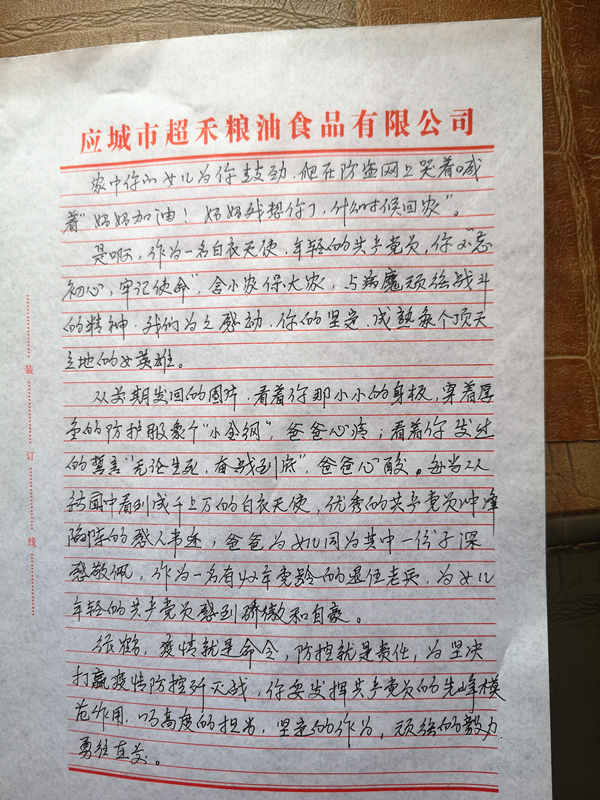 应城市超禾粮油食品有限公司
家中你的女儿为你鼓劲,爬在防盗网上哭着喊
着"妈妈加油!妈妈我想你了,什么时候回家"。
是啊,作为一名白衣天使,年轻的共产党员,你"不忘
初心,牢记使命",舍小家保大家,与病魔顽强战斗
的精神,我们为之感动,你的坚定、成熟象个顶天
立地的女英雄。
从前期发回的图片,看着你那小小的身板,穿着厚
重的防护服象个"小金钢",爸爸心疼;看着你发出
的誓言"无论生死,奋战到底",爸爸心酸。每当从
新闻中看到成千上万的白衣天使,优秀的共产党员冲峰
陷阵的感人事迹,爸爸为女儿同为其中一份子深
感敬佩,作为一名有42年党龄的退伍老兵,为女儿
年轻的共产党员感到骄傲和自豪。
鹤,疫情就是命令,防控就是责任,为坚决
打赢疫情防控歼灭战,你要发挥共产党员的先峰模
范作用,以高度的担当,坚定的作为,顽强的毅力
勇往直前。
装
订
线